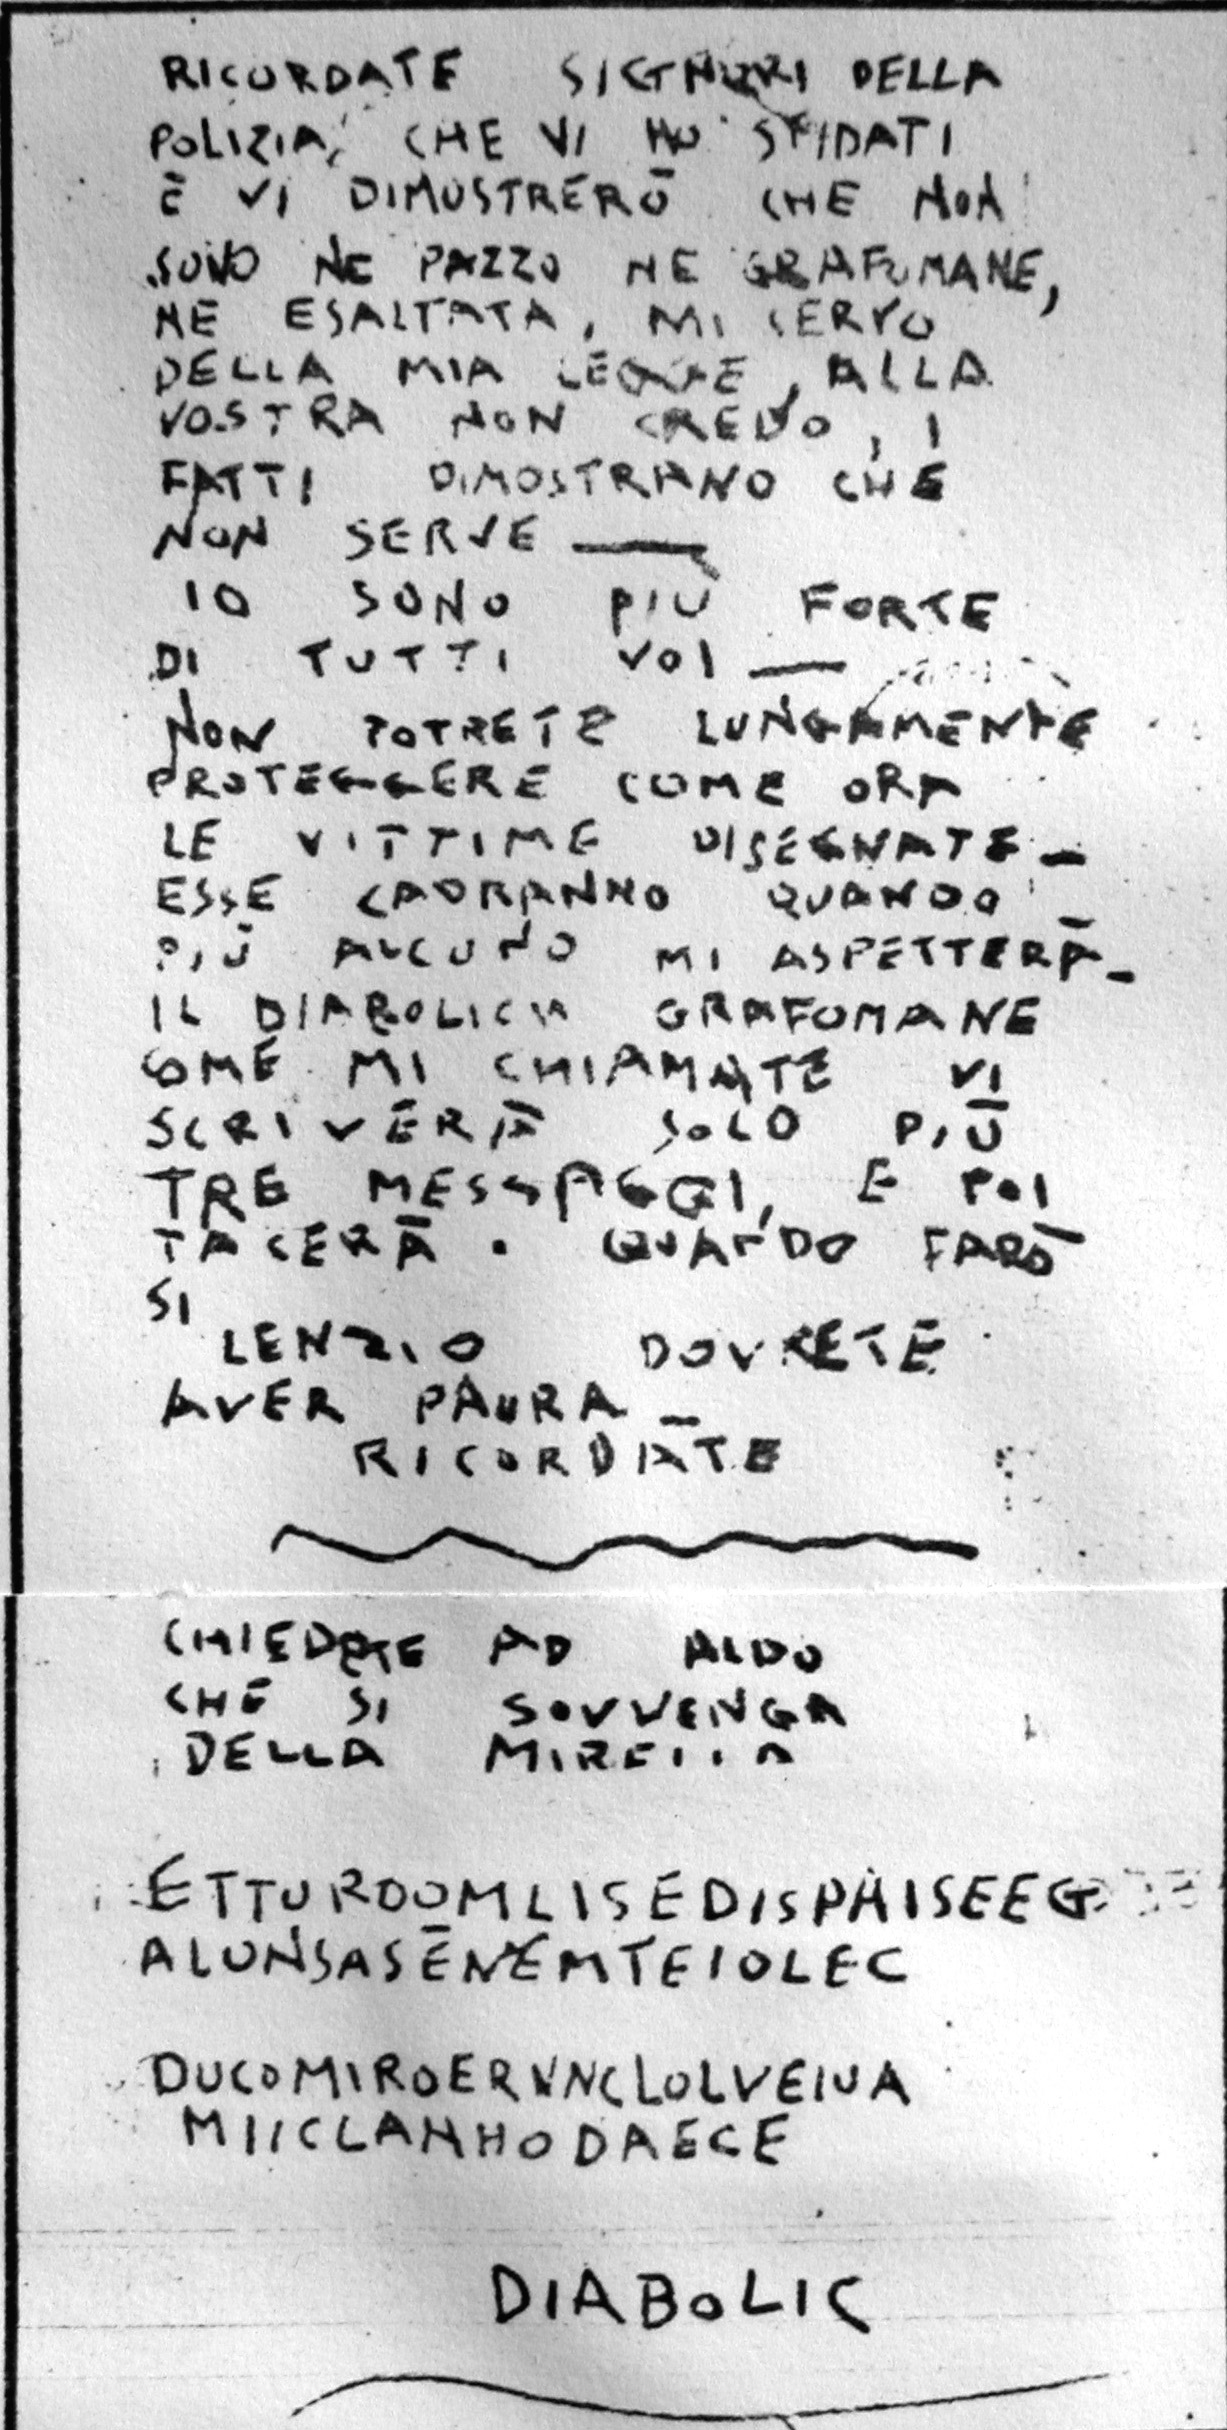 RICORDATE SIGNORI DELLA
POLIZIA, CHE VI HO SFIDATI
E VI DIMOSTRERÒ CHE NON
SONO NE PAZZO NE GRAFOMANE,
NE ESALTATA, MI SERVO
DELLA MIA LEGGE, ALLA
VOSTRA NON CREDO, I
FATTI DIMOSTRANO CHE
NON SERVE —
IO SONO PIÙ FORTE
DI TUTTI VOI —
NON POTRETE LUNGAMENTE
PROTEGGERE COME ORA
LE VITTIME DISEGNATE —
ESSE CADRANNO QUANDO
PIÙ ALCUNO MI ASPETTERÀ —
IL DIABOLICO GRAFOMANE
COME MI CHIAMATE VI
SCRIVERÀ SOLO PIÙ
TRE MESSAGGI, E POI
TACERÀ. QUANDO FARÒ
SI
LENZIO DOVRETE
AVER PAURA —
RICORDATE
CHIEDETE AD ALDO
CHE SI SOVVENGA
DELLA MIRELLA
ETTUROOMLISEDISPHISEEG
ALUNSASENEMTEIOLEC
DUCOMIROERVNCLOLVEIUA
MIICLANHODAECE
DIABOLIC